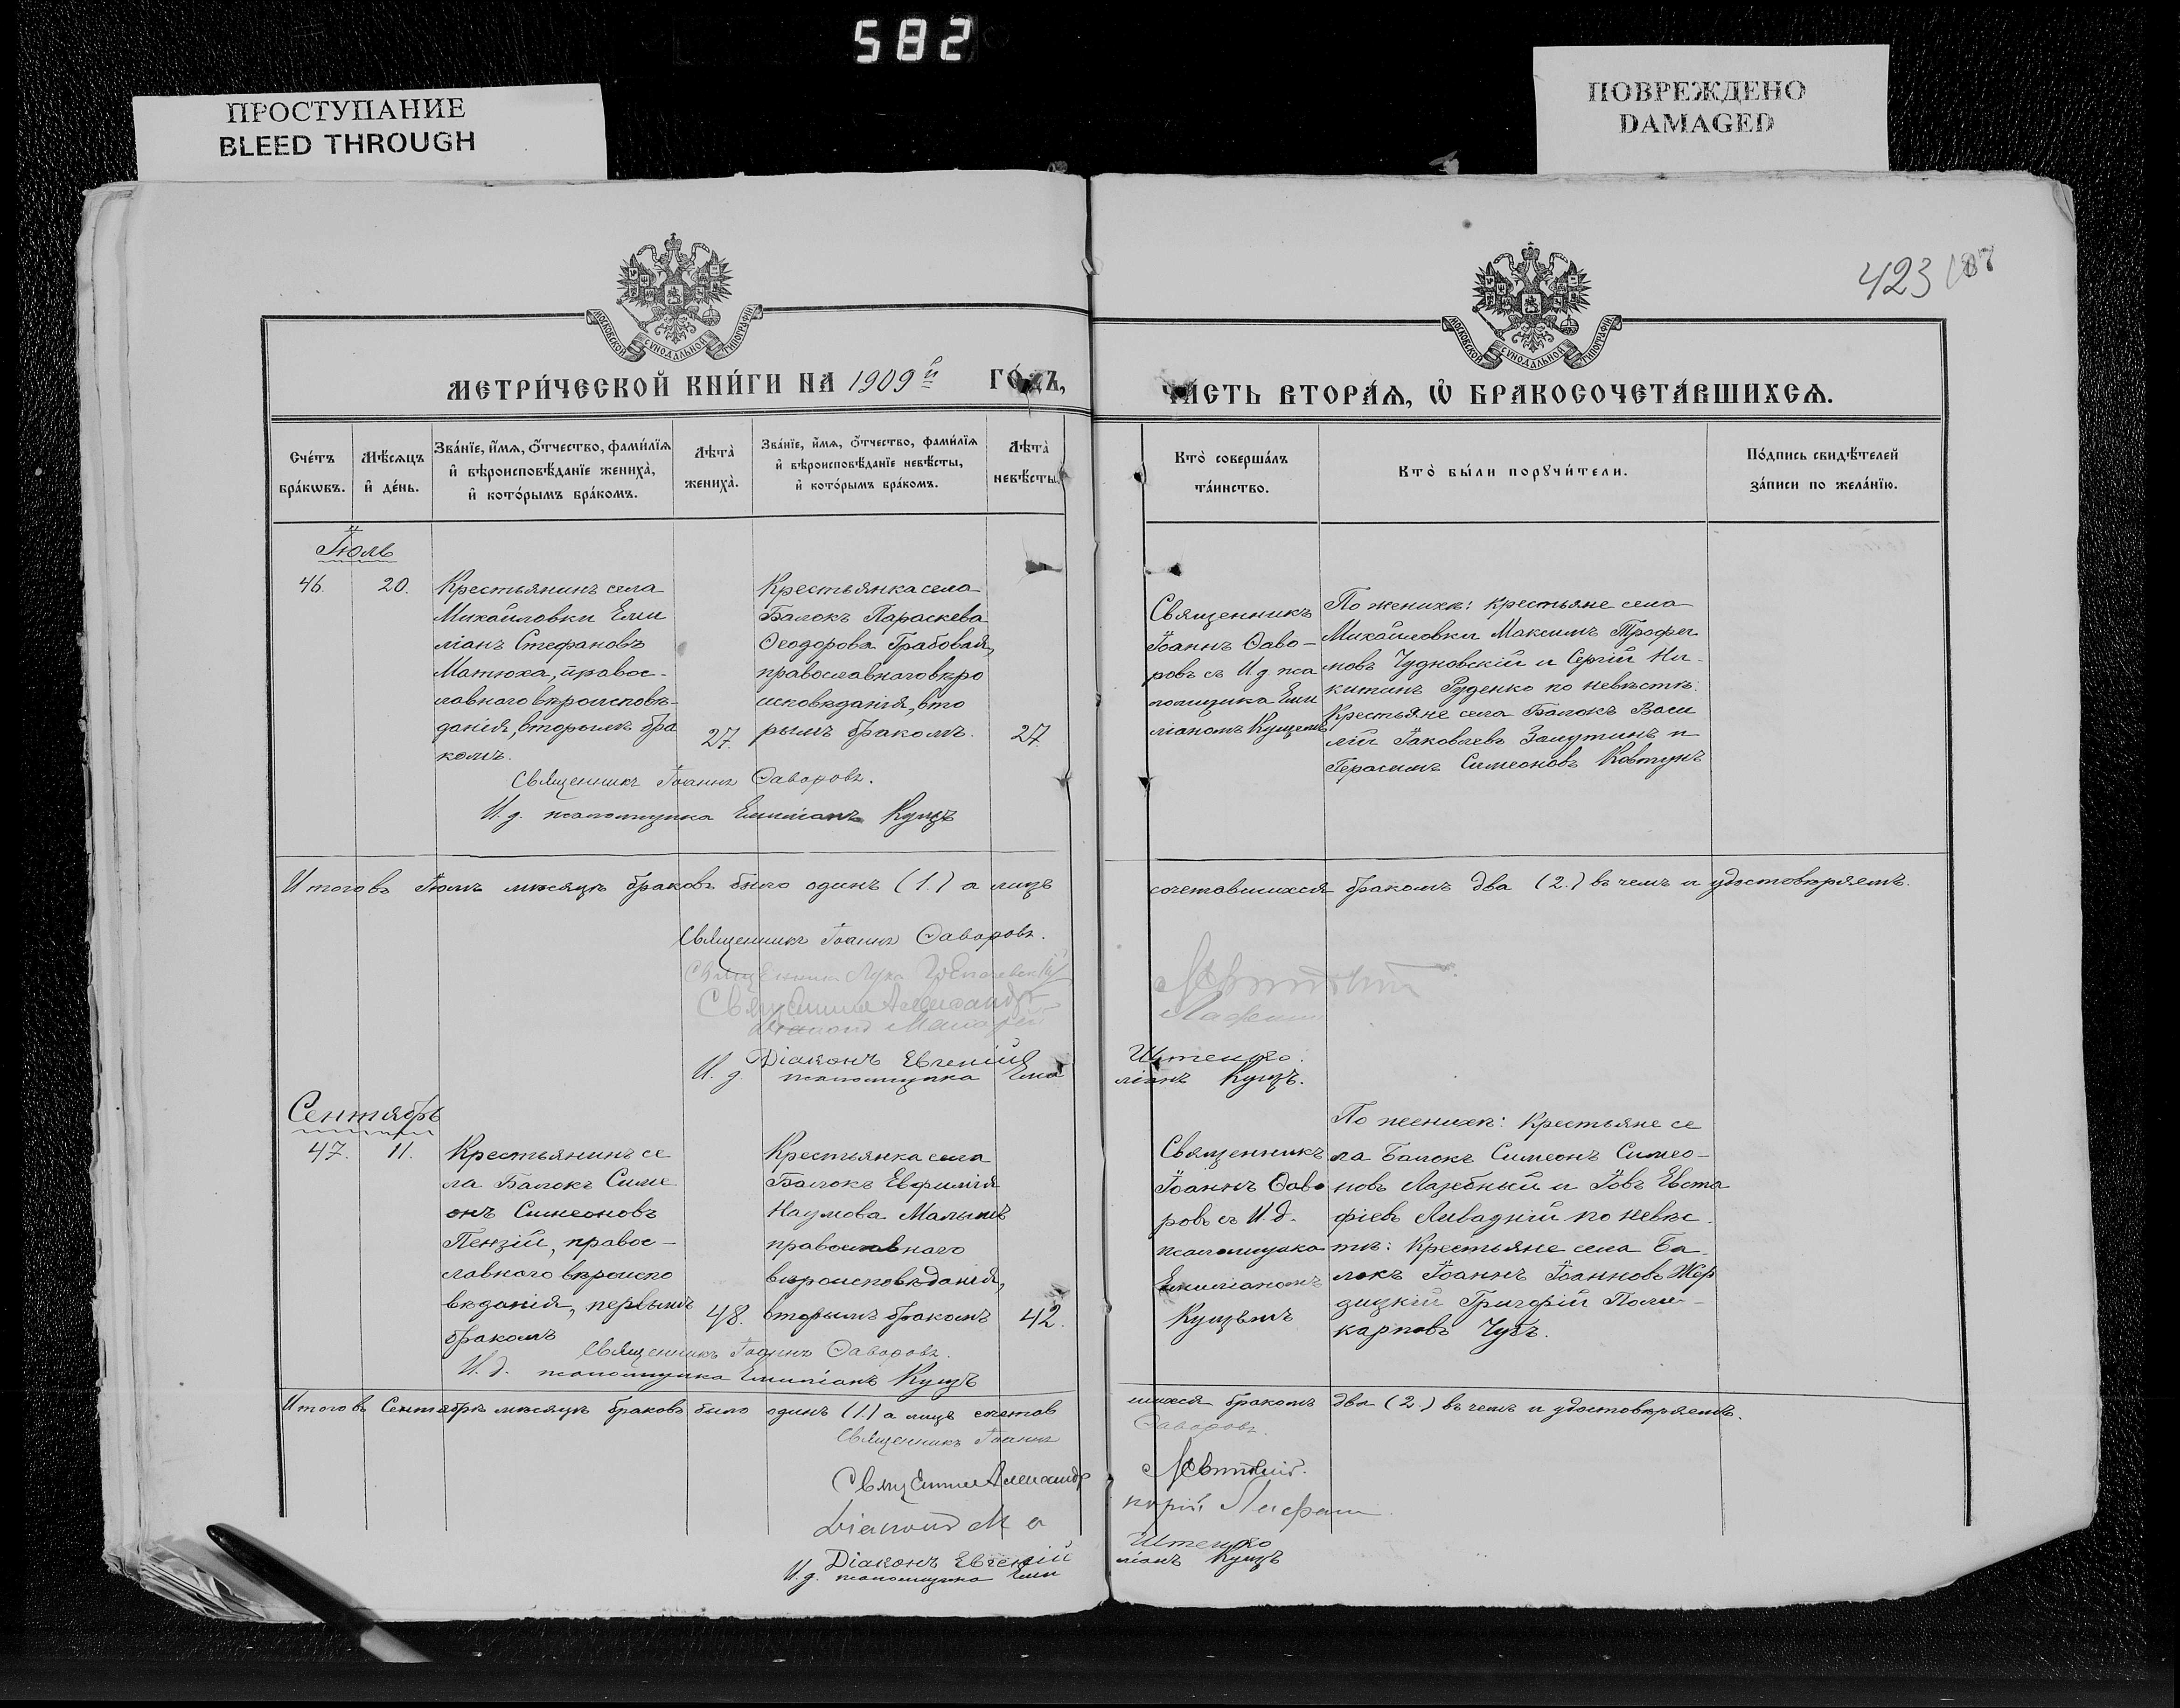 582
ПРОСТУПАНИЕ
BLEED THROUGH
ПОВРЕЖДЕНО
DAMAGED
423
МОСКОВСКОЙ СѴНОДАЛЬНОЙ ТИПОГРАФІИ
МОСКОВСКОЙ СѴНОДАЛЬНОЙ ТИПОГРАФІИ
МЕТРИ́ЧЕСКОЙ КНИ́ГИ НА 1909й ГО́ДЪ,
ЧА́СТЬ ВТОРА́Ѧ, Ѽ БРАКОСОЧЕТА́ВШИХСѦ.
Сче́тъ
бра́кѡвъ.
Мѣ́сѧцъ
и҆ де́нь.
Зва́нїе, и҆́мѧ, ѻ҆́тчество, фами́лїѧ
и҆ вѣроисповѣ́данїе жениха̀,
и҆ кото́рымъ бра́комъ.
Лѣта̀
жениха̀.
Зва́нїе, и҆́мѧ, ѻ҆́тчество, фами́лїѧ
и҆ вѣроисповѣ́данїе невѣ́сты,
и҆ кото́рымъ бра́комъ.
Лѣта̀
невѣ́сты.
Кто̀ соверша́лъ
та́инство.
Кто̀ бы́ли порꙋчи́тели.
По́дпись свидѣ́телей
за́писи по жела́нїю.
Іюль
46. 20.
Крестьянинъ села
Михайловки Еми
ліанъ Стефановъ
Матюха, правос-
лавнаго вѣроисповѣ-
данія, вторымъ бра
комъ.
27.
Крестьянка села
Балокъ Параскева
Ѳеодорова Грабовая,
православнаго вѣро
исповѣданія, вто
рымъ бракомъ.
27
Священникъ
Іоаннъ Ѳаво-
ровъ съ И. д. пса
ломщика Еми
ліаномъ Кущемъ
По женихѣ: крестьяне села
Михайловки Максимъ Трофи
мовъ Чудновскій и Сергій Ни-
китинъ Руденко по невѣстѣ:
Крестьяне села Балокъ Васи
лій Іаковлевъ Запутинъ и
Герасимъ Симеоновъ Ковтунъ
Священникъ Іоаннъ Ѳаворовъ.
И. д. псаломщика Емиліанъ Кущъ
Итого въ Іюлѣ мѣсяцѣ браковъ было одинъ (1.) а лицъ
сочетовшихся бракомъ два (2.) въ чемъ и удостовѣряемъ.
Священникъ Іоаннъ Ѳаворовъ.
Священникъ Лука
Священникъ Александръ
Діаконъ Евгеній
Штенко.
И. д. псаломщика Еми
ліанъ Кущъ.
Сентябрь
47. 11.
Крестьянинъ се
ла Балокъ Симе
онъ Симеоновъ
Пензій, правос-
лавнаго вѣроиспо
вѣданія, первымъ
бракомъ
48.
Крестьянка села
Балокъ Евфимія
Наумова Малышъ
православнаго
вѣроисповѣданія,
вторымъ бракомъ
42.
Священникъ
Іоаннъ Ѳаво
ровъ съ И. д.
псаломщика
Емиліаномъ
Кущемъ
По женихѣ: Крестьяне се
ла Балокъ Симеонъ Симео-
новъ Лазебный и Іовъ Евста
фіевъ Ливадній по невѣс-
тѣ: Крестьяне села Ба-
локъ Іоаннъ Іоанновъ Жер
дицкій Григорій Поли-
карповъ Чубъ.
Священникъ Іоаннъ Ѳаворовъ.
И. д. псаломщика Емиліанъ Кущъ
Итого въ Сентябрѣ мѣсяцѣ браковъ было одинъ (1.) а лицъ сочетов
шихся бракомъ два (2.) въ чемъ и удостовѣряемъ.
Священникъ Іоаннъ
Ѳаворовъ.
Священникъ Александръ
Діаконъ Ма
Діаконъ Евгеній
Штенко
И. д. псаломщика Еми
ліанъ Кущъ